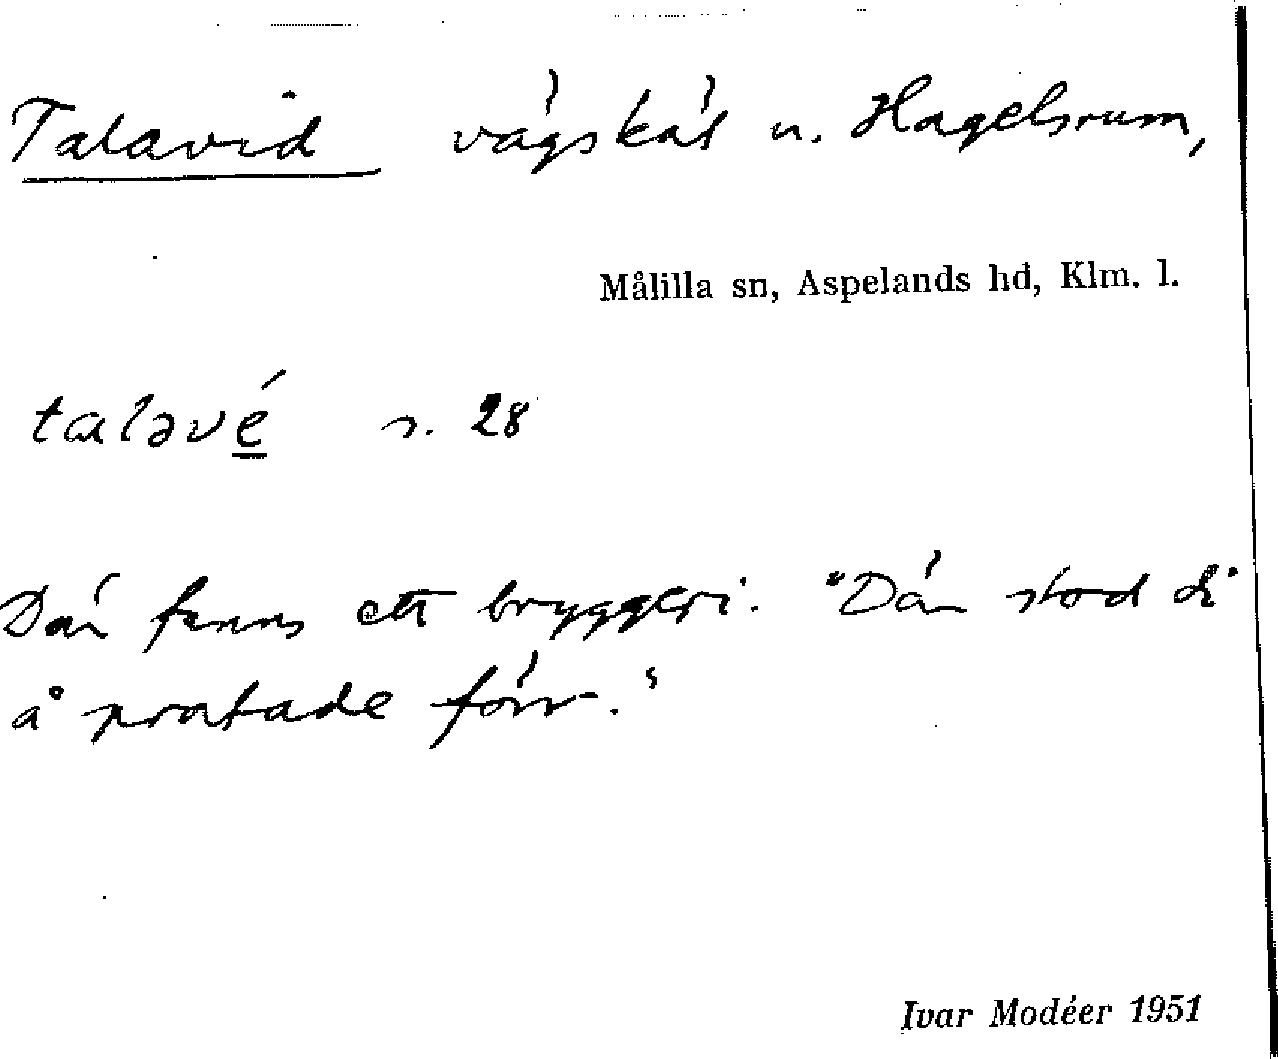 Talavid vägskäl n. Hagelsrum,
Målilla sn, Aspelands hd, Klm. l.
taləvé s. 28
Där fanns ett bryggeri. "Där stod di
å pratade förr."
Ivar Modéer 1951